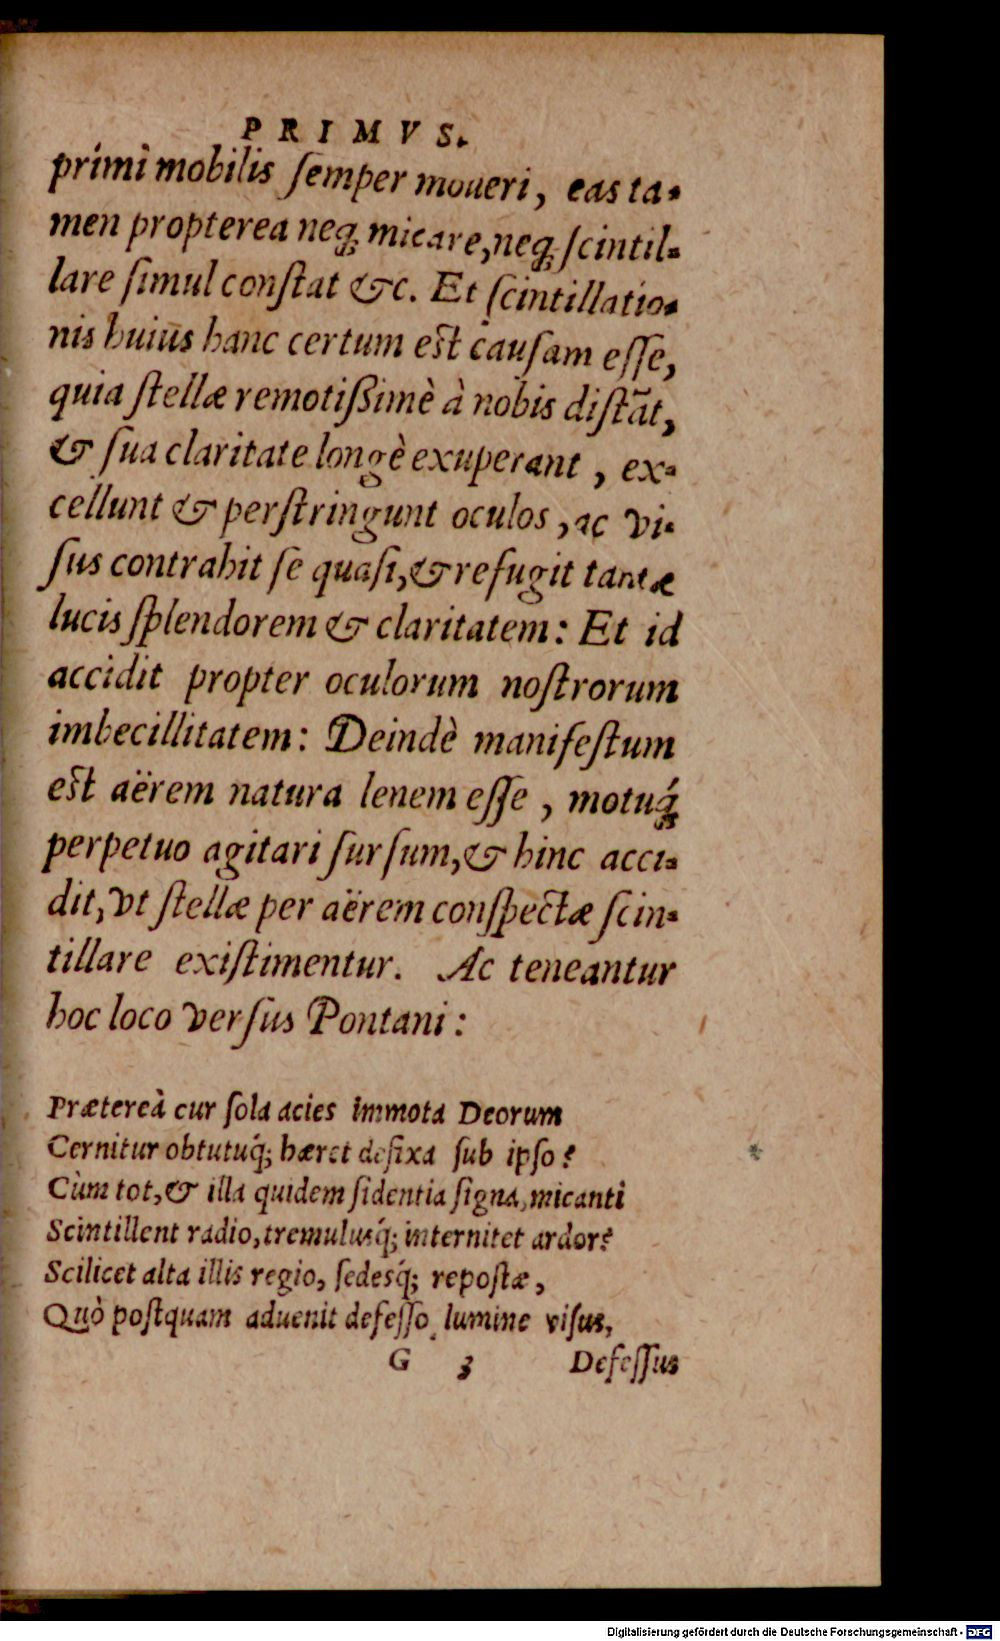 PRIMVS.
primi mobilis ſemper moueri, eas ta-
men propterea neq; micare, neq; ſcintil-
lare ſimul conſtat &c. Et ſcintillatio-
nis huius hanc certum eſt cauſam eſſe,
quia ſtellæ remotißimè à nobis diſtãt,
& ſua claritate longè exuperant, ex-
cellunt & perſtringunt oculos, ac vi-
ſus contrahit ſe quaſi, & refugit tantæ
lucis ſplendorem & claritatem: Et id
accidit propter oculorum noſtrorum
imbecillitatem: Deindè manifeſtum
eſt aërem natura lenem eſſe, motuq́;
perpetuo agitari ſurſum, & hinc acci-
dit, vt ſtellæ per aërem conſpectæ ſcin-
tillare exiſtimentur. Ac teneantur
hoc loco verſus Pontani:
Prætereà cur ſola acies immota Deorum
Cernitur obtutuq́; hæret defixa ſub ipſo?
Cùm tot, & illa quidem ſidentia ſigna, micanti
Scintillent radio, tremulusq́; internitet ardor?
Scilicet alta illis regio, ſedesq́; repoſtæ,
Quò poſtquam aduenit defeſſo lumine viſus,
G 3 Defeſſus
Digitalisierung gefördert durch die Deutsche Forschungsgemeinschaft - DFG